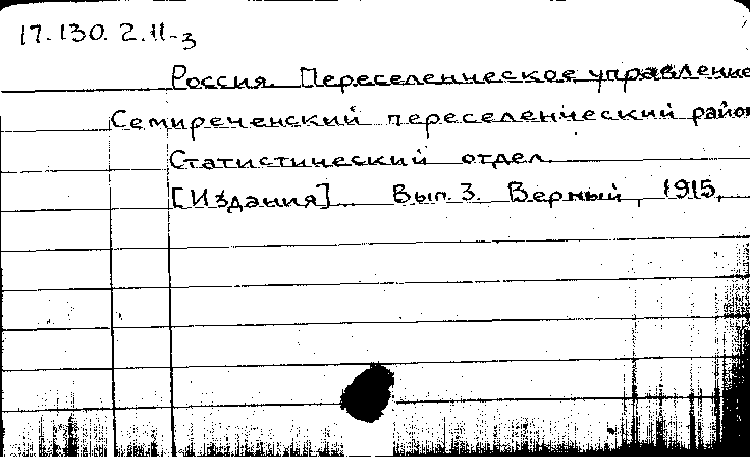 17.130.2.11-3
Россия. Переселенческое управление
Семиреченский переселенческий район
Статистический отдел.
[Издания]... Вып. 3. Верный, 1915.